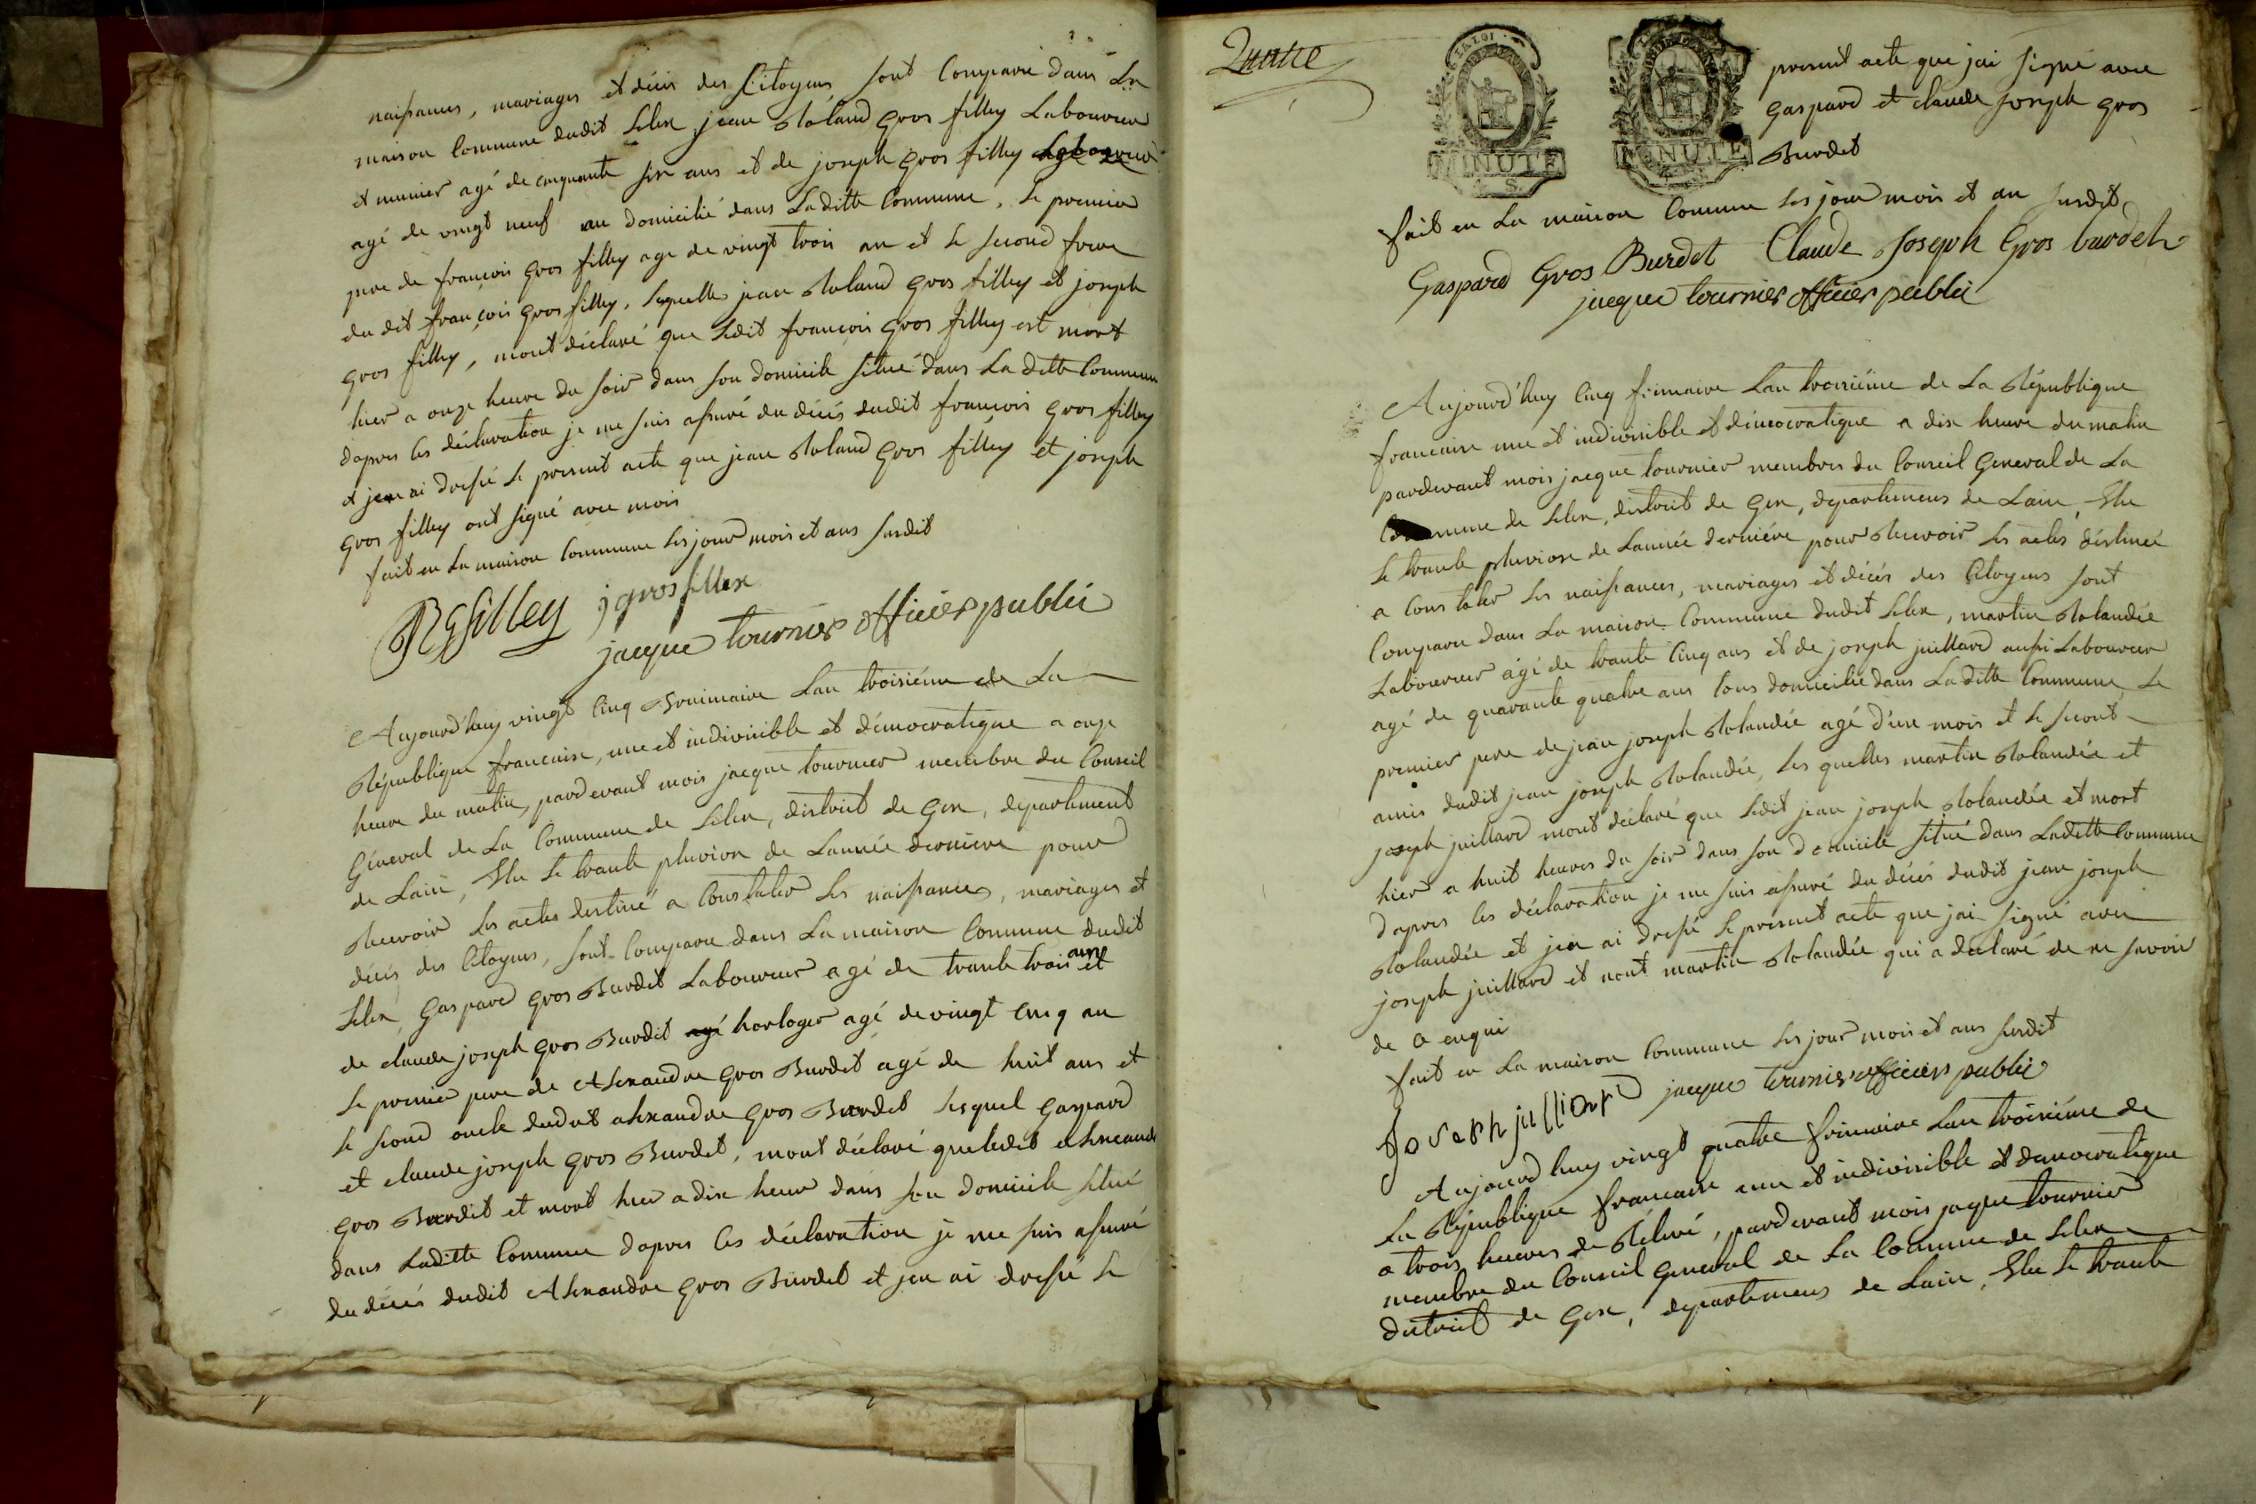 naissances, mariages et décés des Citoyens sont Comparu dans La
maison Commune dudit Lelex jean Roland gros filley Laboureur
et munier agé de cinquante six ans et de joseph gros filley
agé de vingt neuf an domicilié dans Laditte Commune, Le premier
pere de françois gros filley age de vingt trois an et Le second frere
du dit françois gros filley, Lequelles jean Roland gros filley et joseph
gros filley, mont déclaré que Ledit françois gros filley est mort
hier a onze heure du soir dans son domicile situé dans La ditte Commune
dapres les déclaration je me suis assuré du décés dudit françois gros filley
et jen ai dressé Le present acte que jean Roland gros filley et joseph
gros filley ont signé avec mois
fait en La maison Commune Les jour mois et ans susdit
RGfilley j grosfillex
jacque tournier officier public
Aujourd'huy vingt Cinq Brumaire Lan troisiéme de La
République francaise, une et indivisible et démocratique a onze
heure du matin, pardevant mois jacque tournier membre du Conseil
Géneral de La Commune de Lelex, district de Gex, departement
de Lain, Elu Le trante pluviose de Lannée derniere pour
Recevoir Les actes destiné a Constater Les naissances, mariages et
décés des Citoyens, sont Comparu dans La maison Commune dudit
Lelex, Gaspard gros Burdet Laboureur agé de trante trois ans et
de claude joseph gros Burdet agé horloger agé de vingt cinq an
Le premier pere de Alexandre gros Burdet agé de huit ans et
Le second oncle dudit alexandre gros Burdet Lesquel gaspard
et claude joseph gros Burdet, mont déclaré que Ledit alexandre
gros Burdet et mort hier a dix heur dans son domicile situé
dans Laditte Commune dapres les déclaration je me suis assuré
du décés dudit Alexandre gros Burdet et jen ai dressé Le
Quatre
LA LOI
MINUTE
MINUTE
present acte que jai signé avec
gaspard et claude joseph gros
Burdet
fait en La maison Comune Les jour mois et an susdit
Gaspard Gros Burdet Claude Joseph Gros burdet
jacque tournier officier public
Aujourd'huy Cinq frimaire Lan troisiéme de La République
francaise une et indivisible et démocratique a dix heure du matin
pardevant mois jacque tournier membres du Conseil General de La
Commune de Lelex, district de Gex, departemens de Lain, Elu
Le trante pluviose de Lannée derniére pour Recevoir Les actes déstineé
a Constater Les naissances, mariages et décés des Citoyens sont
Comparu dans La maison Commune dudit Lelex, martin Rolandée
Laboureur agé de trante Cinq ans et de joseph juillard aussi Laboureur
agé de quarante quatre ans tous domicilié dans Laditte Commune, Le
premier pere de jean joseph Rolandée agé d'un mois et Le second
amis dudit jean joseph Rolandée, Les quelles martin Rolandée et
joseph juillard mont déclaré que Ledit jean joseph Rolandée et mort
hier a huit heures du soir dans son domicile situé dans Laditte Commune
dapres les déclaration je me suis assuré du décés dudit jean joseph
Rolandée et jen ai dressé Le present acte que jai signé avec
joseph juillard et nont martin Rolandée qui a declaré de ne savoir
de ce enqui
fait en La maison Commune Les jour mois et ans susdit
Joseph julliard jacque tournier officier public
Aujourd'huy vingt quatre frimaire Lan troisiéme de
La République francaise une et indivisible et democratique
a trois heures de Relevé, pardevant mois jaque tournier
membre du Conseil General de La Comune de Lelex
district de Gex, departemens de Lain, Elu Le trante